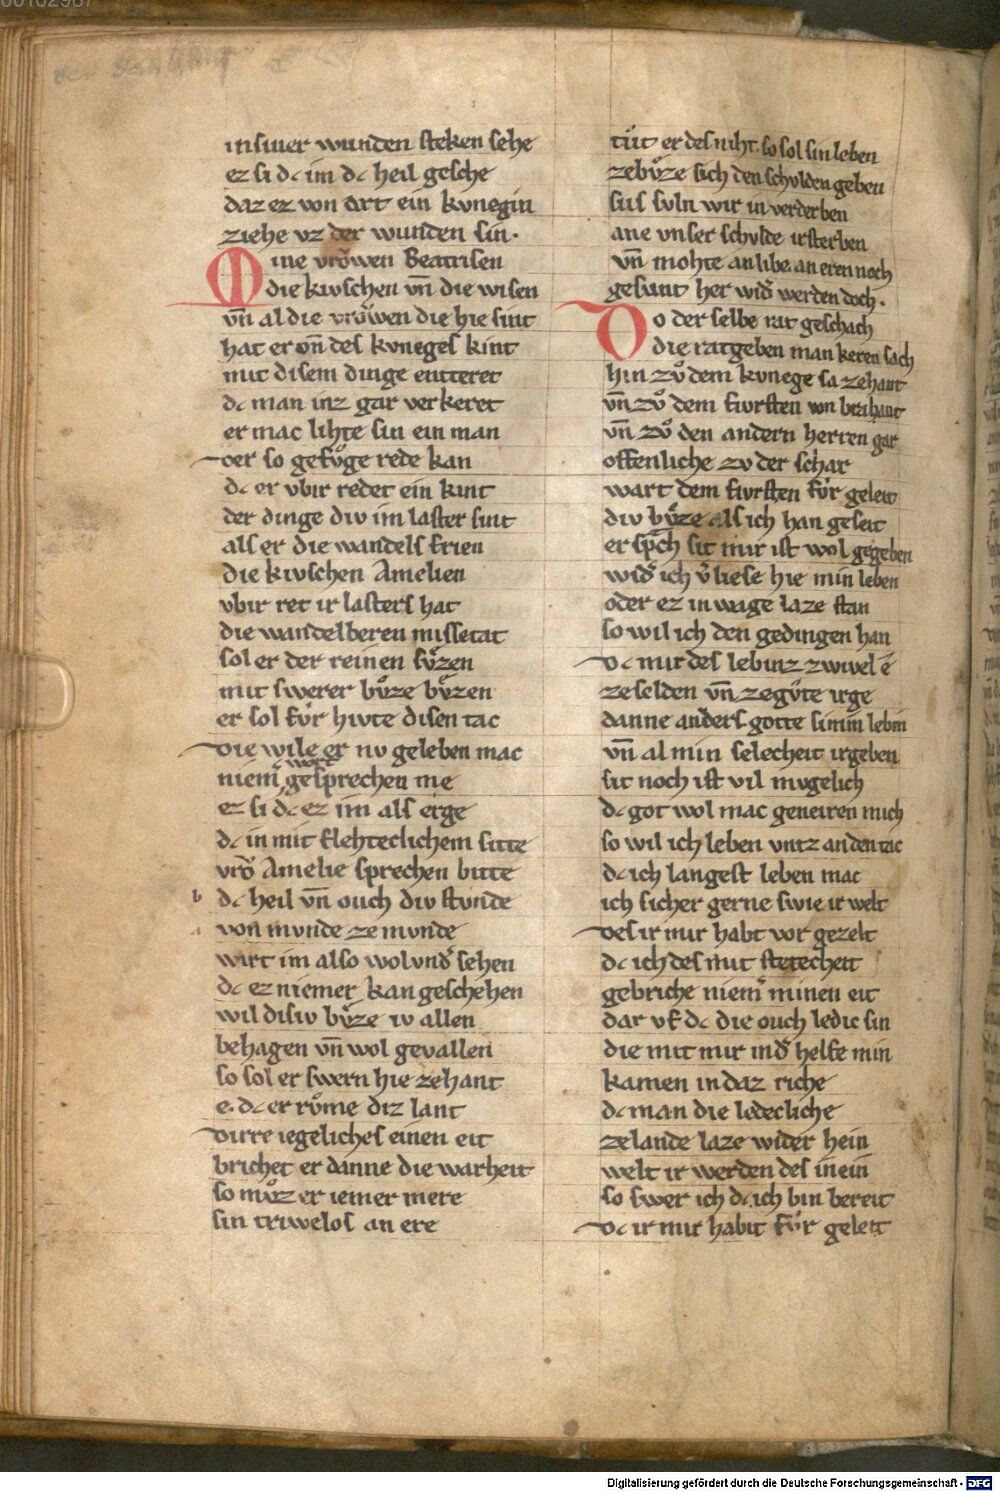 in siner wunden steken sehe
ez si dc im dc heil gesche
daz ez von dort ein kvnegin
ziehe vz der wunden sin·
Mine vrǒwen Beatrisen
die kivschen vn̄ die wisen
vn̄ al die vrǒwen die hie sint
hat er vn̄ des kvneges kint
mit disem dinge entteret
dc man inz gar verkeret
er mac lihte sin ein man
der so gefvͦge rede kan
dc er vbir redet ein kint
der dinge div im laster sint
als er die wandels frien
die kivschen Amelien
vbir ret ir lasters hat
die wandelberen missetat
sol er der reinen svͤzen
mit swerer bvͦze bvͤzen
er sol fvͤr hivte disen tac
die wile er nv geleben mac
niem̄ wort gesprechen me
ez si dc ez im als erge
dc in mit flehteclichem sitte
vrǒ Amelie sprechen bitte
b dc heil vn̄ ouch div stvnde
a von mvnde ze mvnde
wirt im also wol vnd̄ sehen
dc ez niemer kan geschehen
wil disiv bvͦze iv allen
behagen vn̄ wol gevallen
so sol er swern hie zehant
e· dc er rvͦme diz lant
dirre iegeliches einen eit
brichet er danne die warheit
so mvͦz er iemer mere
sin triwelos an ere
tuͦt er des niht· so sol sin leben
zebvͦze sich den schvlden geben
sus suln wir in verderben
ane vnser schvlde irsterben
vn̄ mohte an libe. an eren noch
gesunt her wid̄ werden doch·
Do der selbe rat geschach
die ratgeben man keren sach
hin zvͦ dem kvnege sa zehant
vn̄ zvͦ dem fivrsten von brahant
vn̄ zvͦ den andern herren gar
offenliche zv der schar
wart dem fivrsten fvͤr geleit
div bvͦze als ich han geseit
er sp̄ch sit mir ist wol gegeben
wid̄ ich v̄liese hie min leben
oder ez in wage laze stan
so wil ich den gedingen han
dc mir des lebinz zwivel e
ze selden vn̄ ze gvͤte irge
danne anders gotte sinīm lebin
vn̄ al min selecheit irgeben
sit noch ist vil mvgelich
dc got wol mac geneiren mich
so wil ich leben vntz an den tac
dc ich langest leben mac
ich sicher gerne swie ir welt
des ir mir habt vor gezelt
dc ich des mit stetecheit
gebriche niem̄ minen eit
dar vf dc die ouch ledic sin
die mit mir ind̄ helfe min
kamen in daz riche
dc man die ledecliche
ze lande laze wider hein
welt ir werden des in ein
so swer ich dc ich bin bereit
dc ir mir habit fvͤr geleit
Digitalisierung gefördert durch die Deutsche Forschungsgemeinschaft - DFG